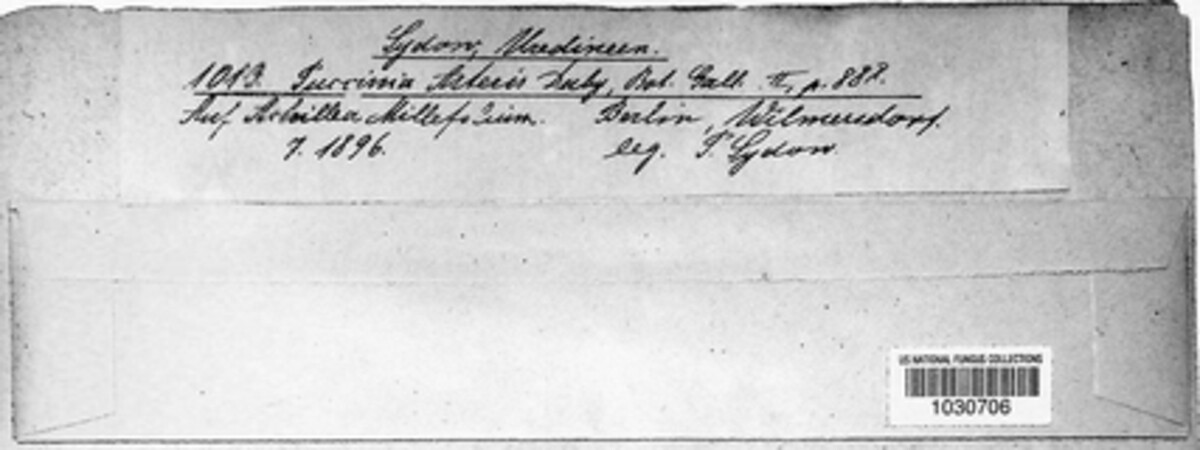 Sydow, Uredineen.
1013. Puccinia Asteris Duby, Bot. Gall. II, p. 888.
Auf Achillea Millefolium. Berlin, Wilmersdorf.
7. 1896. leg. P. Sydow.
US NATIONAL FUNGUS COLLECTIONS
1030706